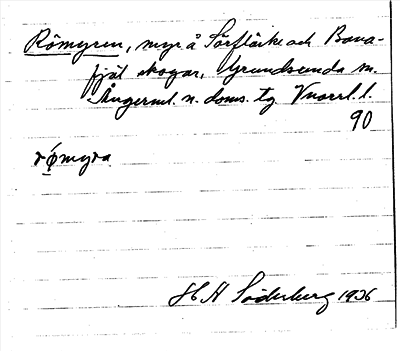 Römyren, myr å Sörflärke och Bana-
fjäl skogar, Grundsunda sn.
Ångerml. n. doms. tg. Vnorrl. l.
90
rǿmyra
H A Söderberg 1936